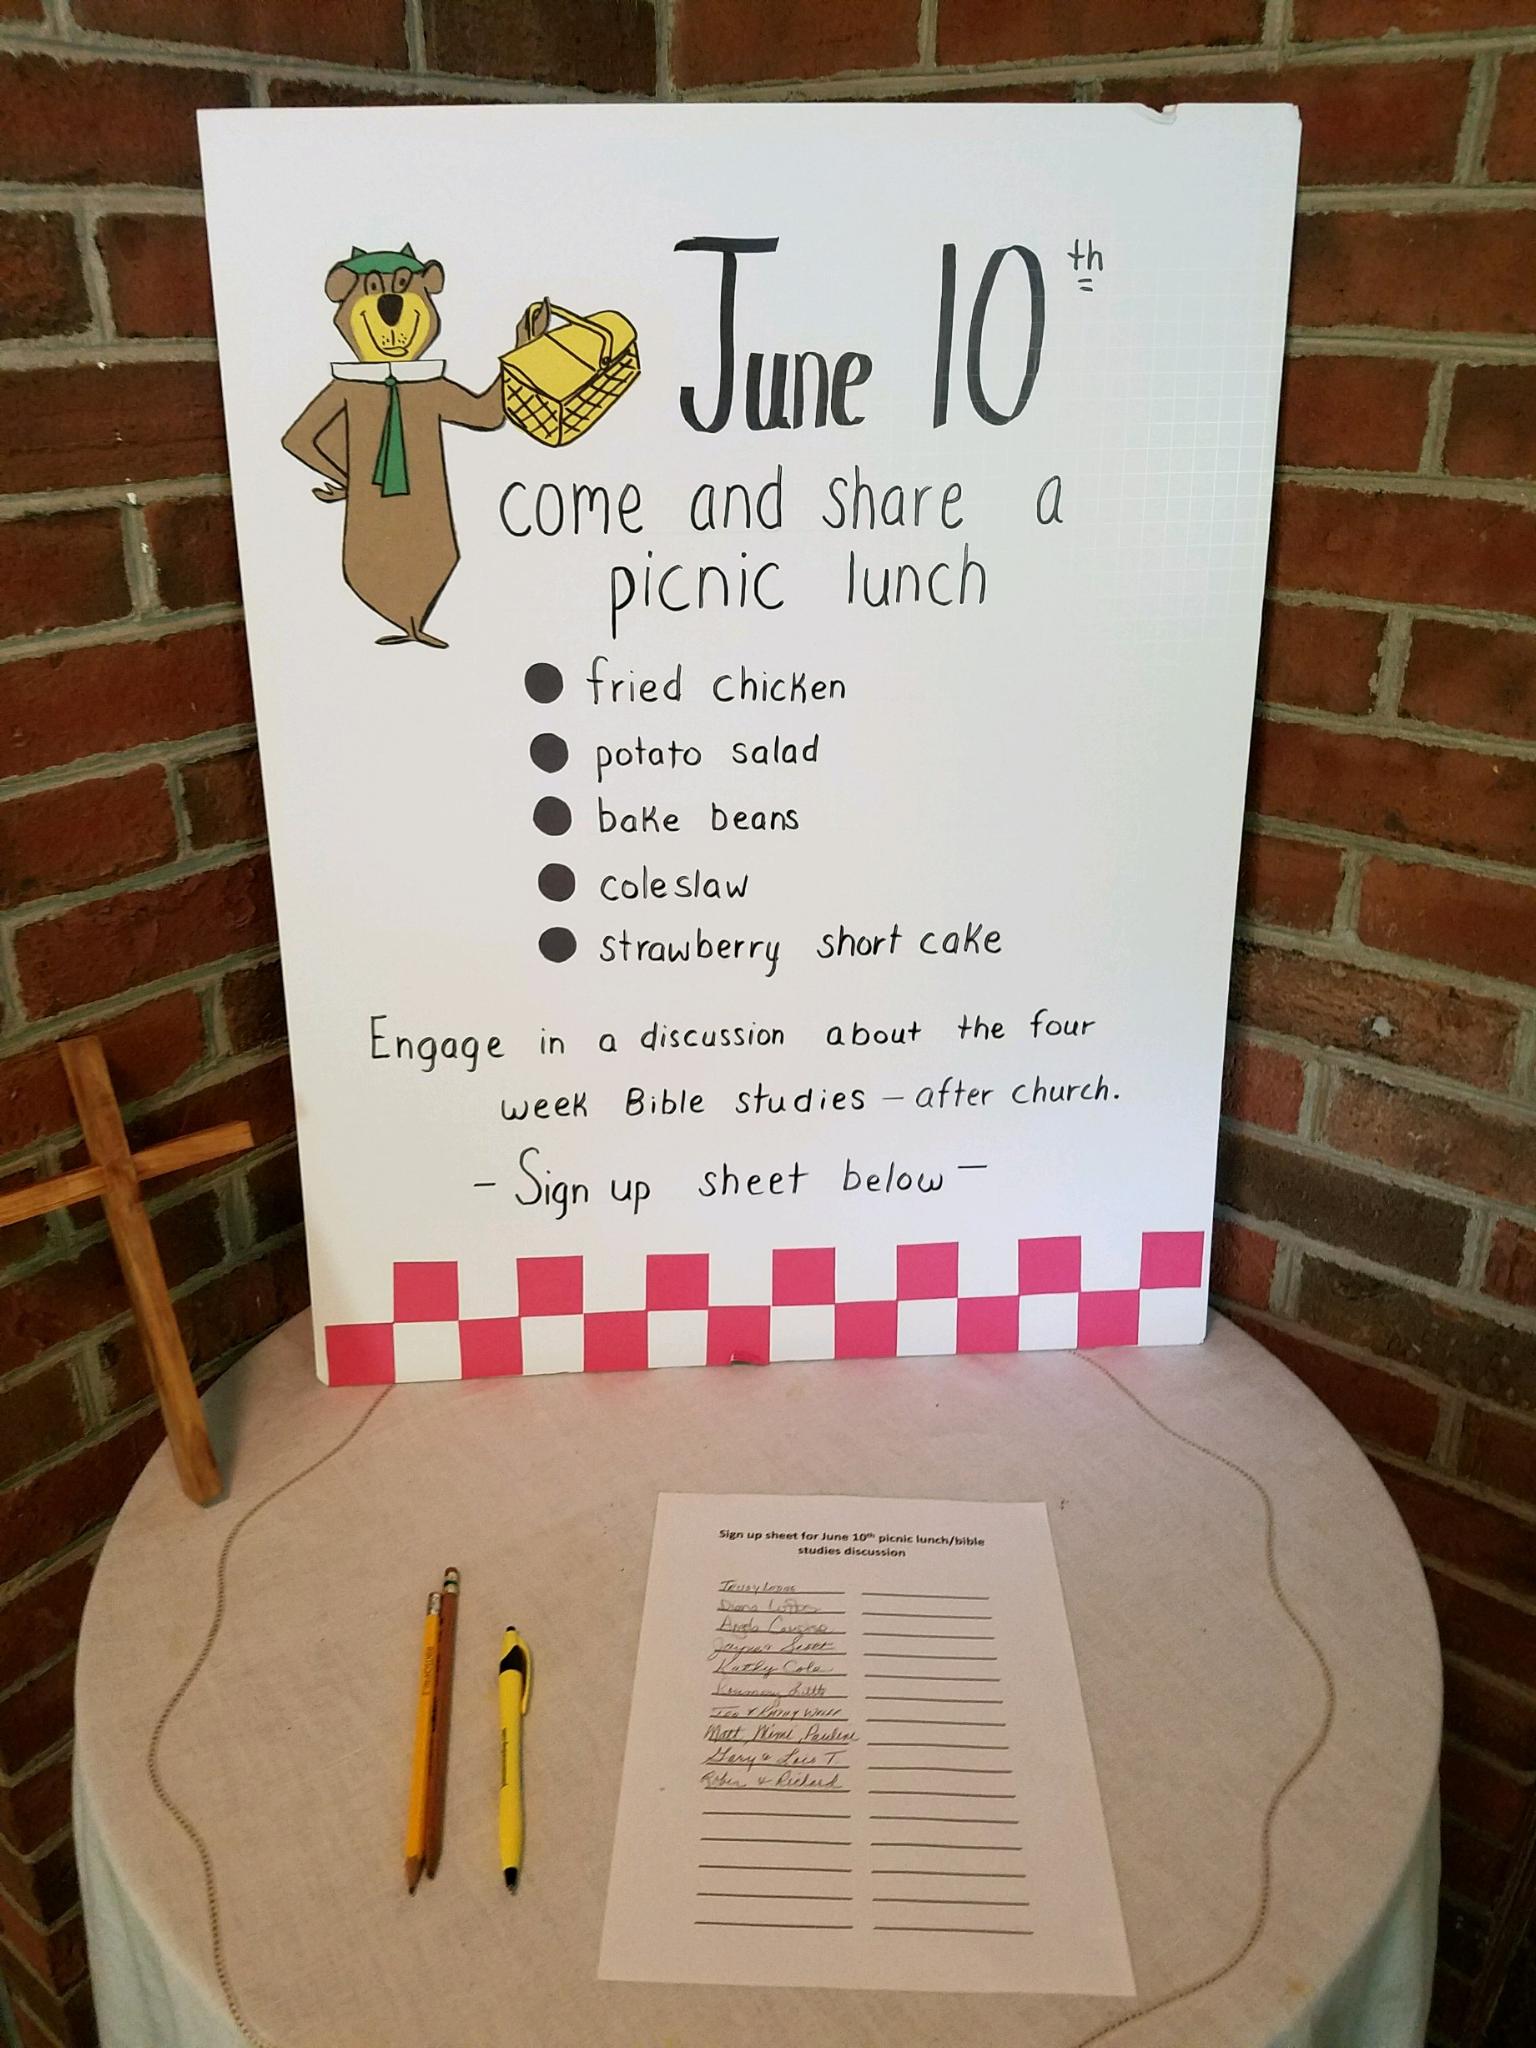 June 10th
come and share a
picnic lunch
fried chicken
potato salad
bake beans
coleslaw
strawberry short cake
Engage in a discussion about the four
week Bible studies - after church.
- Sign up sheet below -
Sign up sheet for June 10th picnic lunch/bible
studies discussion
Kathy Cole
Rosemary
Matt, Mimi, Pauline
Gary & Lois T.
Robin & Richard